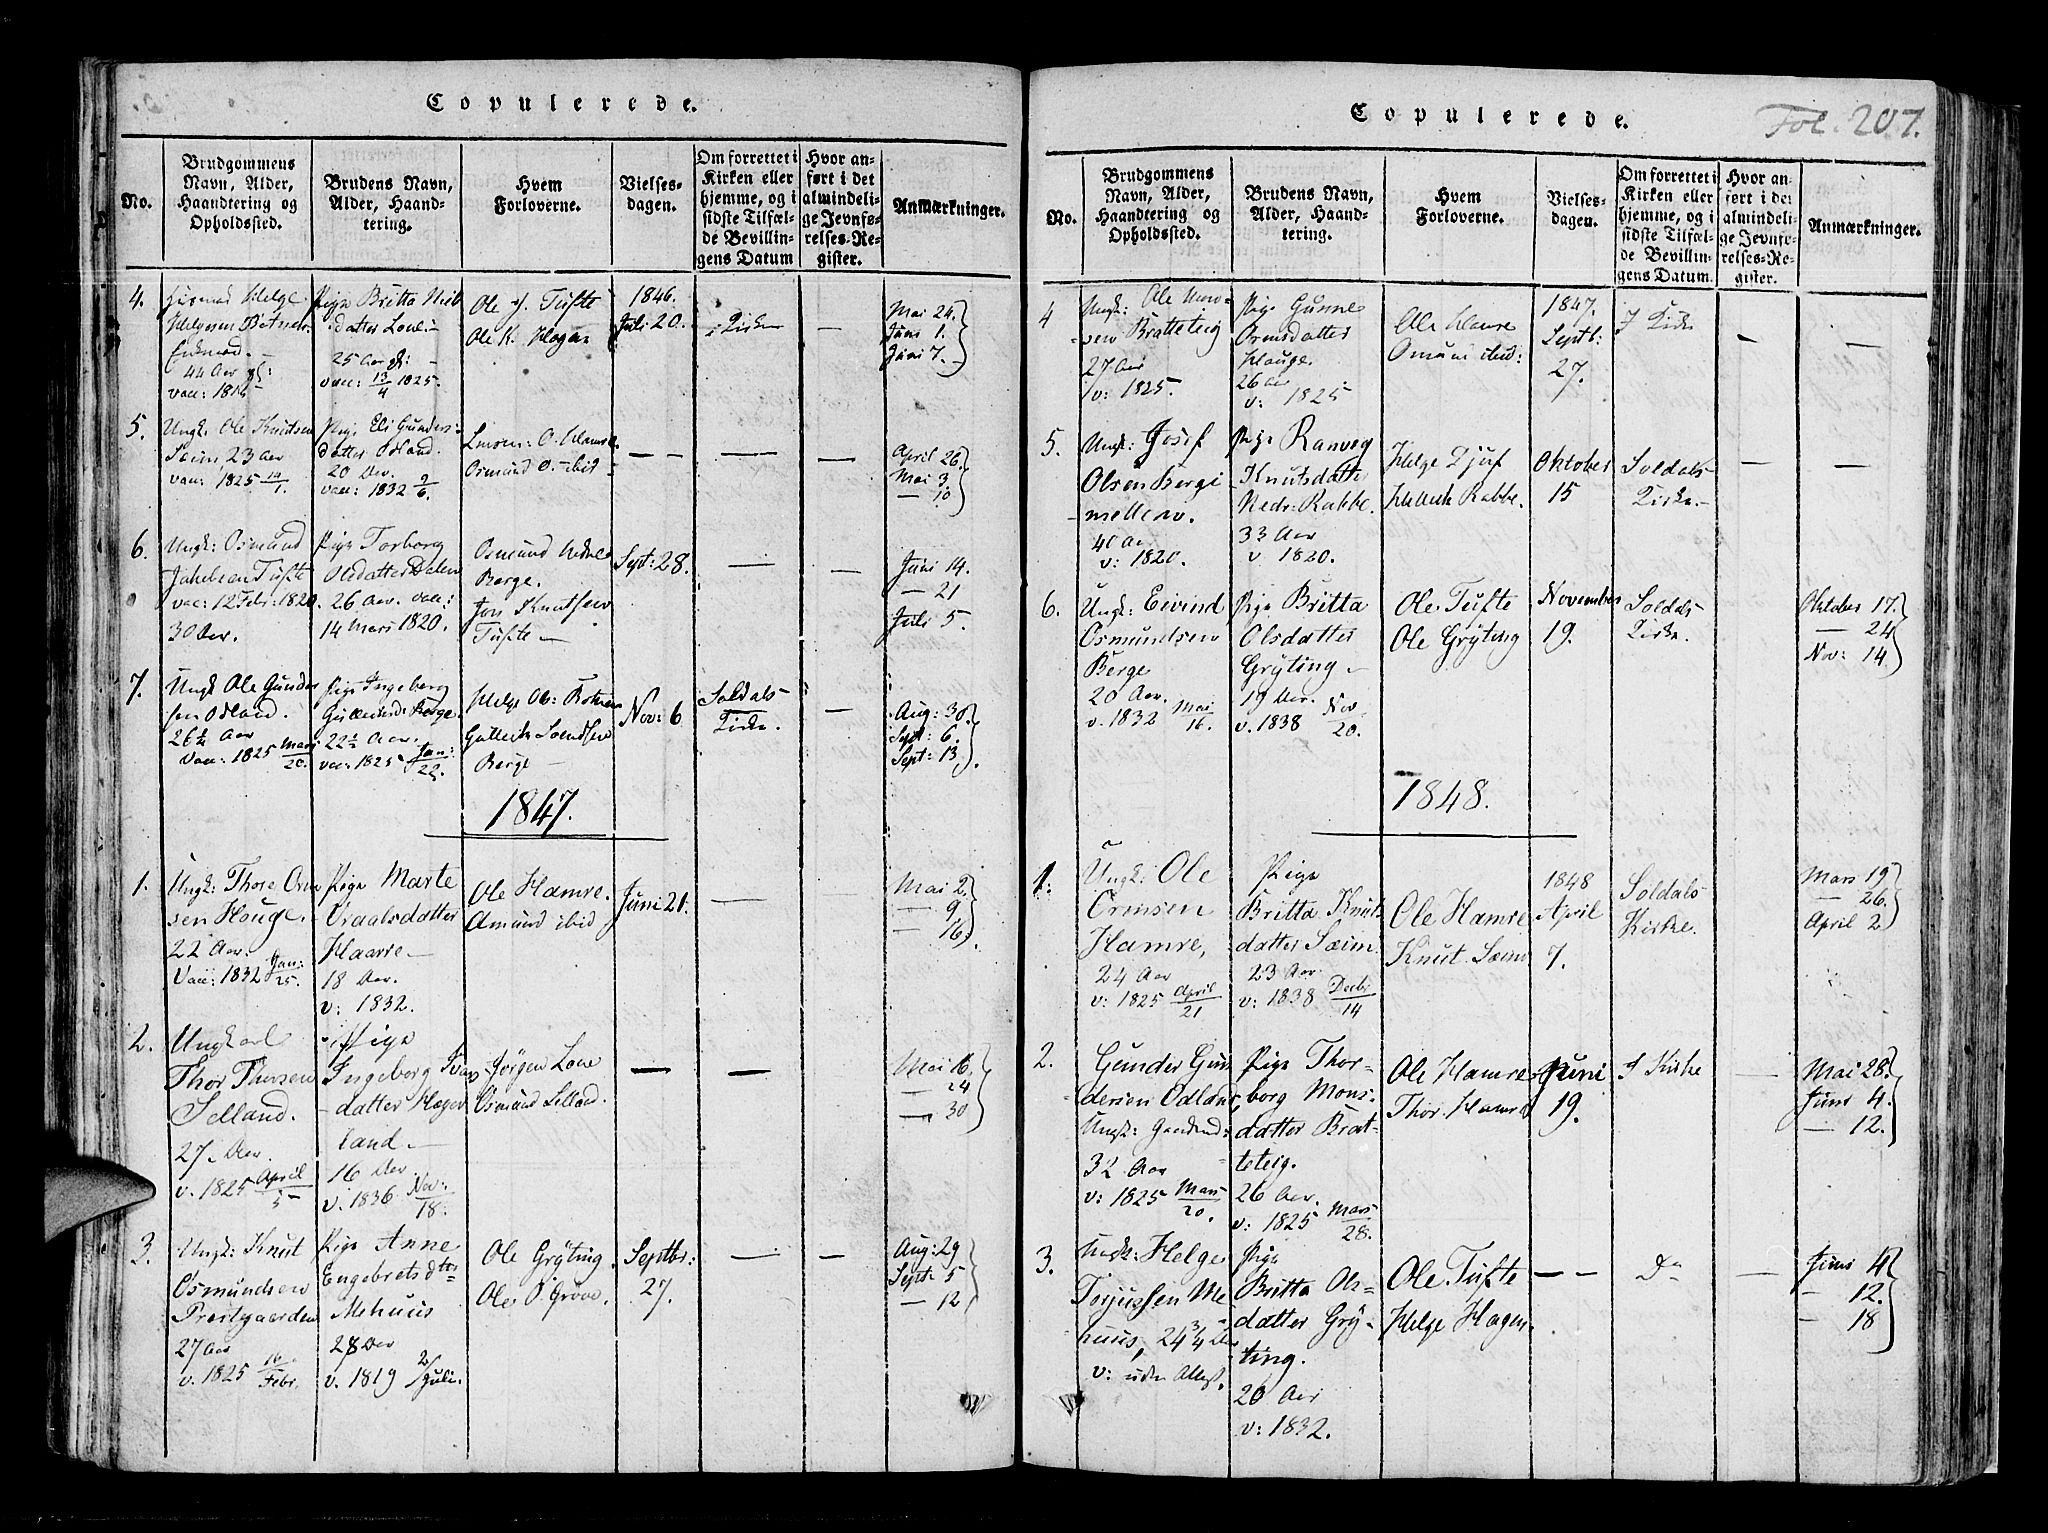 Copulerede.
No.
Brudgommens
Navn, Alder,
Haandtering og
Opholdssted.
Brudens Navn,
Alder, Haand-
tering.
Hvem
Forloverne.
Vielses-
dagen.
Om forrettet i
Kirken eller
hjemme, og i
sidste Tilfæl-
de Bevillin-
gens Datum
Hvor an-
ført i det
almindeli-
ge Jevnfø-
relses-Re-
gister.
Anmærkninger.
4.
Helge
44 Aar
Pige Britta
datter Lone
25 Aar
vac: 13/4 1825.
Ole J. Tufte
Ole K. Hagen
1846.
Juli 20.
Kirke
—
Mai 24.
Juni 1.
Juni 7.
5.
Ungk. Ole Knutsen
Sæim 23 Aar
vac: 1825 14/1.
Pige Eli Gunders:
datter Odland.
20 Aar.
vac: 1832 2/6.
O. Hamre
Osmund O. ibid
—
—
—
April 26.
Mai 3.
— 10
6.
Ungk: Osmund
Tufte
vac: 12 Febr: 1820.
30 Aar.
Pige Torborg
Olsdatter Dalen
26 Aar. vac:
14 Mars 1820.
Osmund
Berge.
Jon Knutsen
Tufte —
Sept: 28.
—
—
Juni 14.
— 21
Juli 5.
7.
Ungk Ole Gunder
sen Odland.
26½ Aar
Vac: 1825 Mars/20.
Pige Ingeborg
Berge.
22½ Aar.
vac: 1825 Jan:/22.
Helge Ols:
Gutterik Svendsen
Berge —
Nov: 6
Soldals-
Kirke.
—
Aug: 30.
Sept: 6.
Sept: 13.
1847.
1.
Ungk: Thore Orm
sen Houge.
22 Aar.
Vac: 1832 Jan:/25.
Pige Marte
Vraalsdatter
Haarre.
18 Aar.
v: 1832.
Ole Hamre.
Amund ibid
Juni 21.
—
Mai 2.
— 9
— 16.
2.
Ungkarl
Thor Thorsen
Selland.
27. Aar.
v. 1825 April/5
Pige
Ingeborg Ivars
datter Hæger
land.—
16 Aar.
v. 1836 Nov:/18.
Jörgen Lone
Osmund Selland.
—
—
Mai 16.
— 24
— 30
3.
Ungk: Knut
Osmundsen
Prestgaarden
27 Aar
v. 1825 16/Febr.
Pige Anne
Engebretsdtr
Mehuus
28 Aar
v. 1819 2/Juli.
Ole Gryting.
Ole O. Grove.
Septbr:
27.
—
—
Aug: 29
Sept: 5
— 12
Copulerede.
Fol. 207.
No.
Brudgommens
Navn, Alder,
Haandtering og
Opholdssted.
Brudens Navn,
Alder, Haand-
tering.
Hvem
Forloverne.
Vielses-
dagen.
Om forrettet i
Kirken eller
hjemme, og i
sidste Tilfæl-
de Bevillin-
gens Datum.
Hvor an-
ført i det
almindeli-
ge Jevnfø-
relses-Re-
gister.
Anmærkninger.
4
Ungk: Ole
sen Bratteteig
27 Aar
v: 1825.
Pige Gunne
Ormsdatter
Houge.
26 Aar
v: 1825
Ole Hamre
Omund ibid:
1847.
Septb:
27.
I Kirke
—
—
5.
Ungk: Josef
Olsen Berge
40 Aar
v: 1820.
Pige Ranveg
Knutsdatter
Nedr: Rabbe.
33 Aar
v 1820.
Helge Djuf
Rabbe.
Oktober
15
Soldals
Kirke.
—
—
6.
Ungk: Eivind
Osmundsen
Berge
20 Aar.
v. 1832 Mai/16.
Pige Britta
Olsdatter
Gryting.
19 Aar.
v. 1838 Nov/20.
Ole Tufte
Ole Gryting
November
19.
Soldals
Kirke.
Oktober 17.
— 24
Nov: 14
1848.
1.
Ungk: Ole
Ormsen
Hamre,
24 Aar
v: 1825 April/21
Pige
Britta Knut
datter Sæim
23 Aar
v: 1838 Decbr/14
Ole Hamre
Knut Sæim
1848
April
7.
Soldals
Kirke.
Mars 19
— 26.
April 2
2.
Gunder Gun
dersen Odland,
32 Aar
v: 1825 Mars/20.
Pige Thor-
borg Mons-
datter Brat-
teteig.
26 Aar.
v: 1825 Mars/28.
Ole Hamre
Thor Hamre
Juni
19.
I Kirke
—
Mai 28.
Juni 4.
— 12.
3.
Ungk: Helge
Torjussen Me
huus, 24¾ Aar
v: uden Attest.
Pige
Britta Ols-
datter Gry-
ting.
20 Aar
v: 1832.
Ole Tufte
Helge Hagen
— —
Do
—
Juni 4
— 12.
— 18